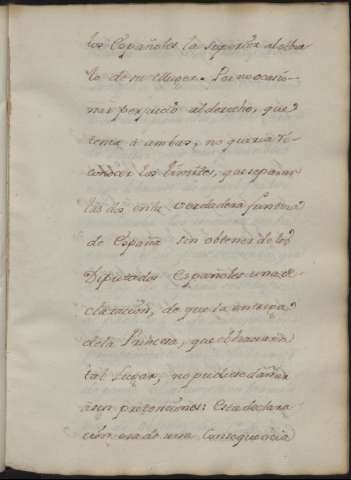 los Españoles la superior al
lo de su Muger. Por no ocasio-
nar perjuicio al derecho, que
tenia à ambas, no queria re-
conocer los limites, que separan
las dos en la verdadera frontera
de España sin obtener de los
Diputados Españoles una de-
claracion, de que la entrega
de la Princesa, que el hacia en
tal Lugar, no pudiese dañar
a sus pretensiones: Esta declara-
cion era de una Consequencia